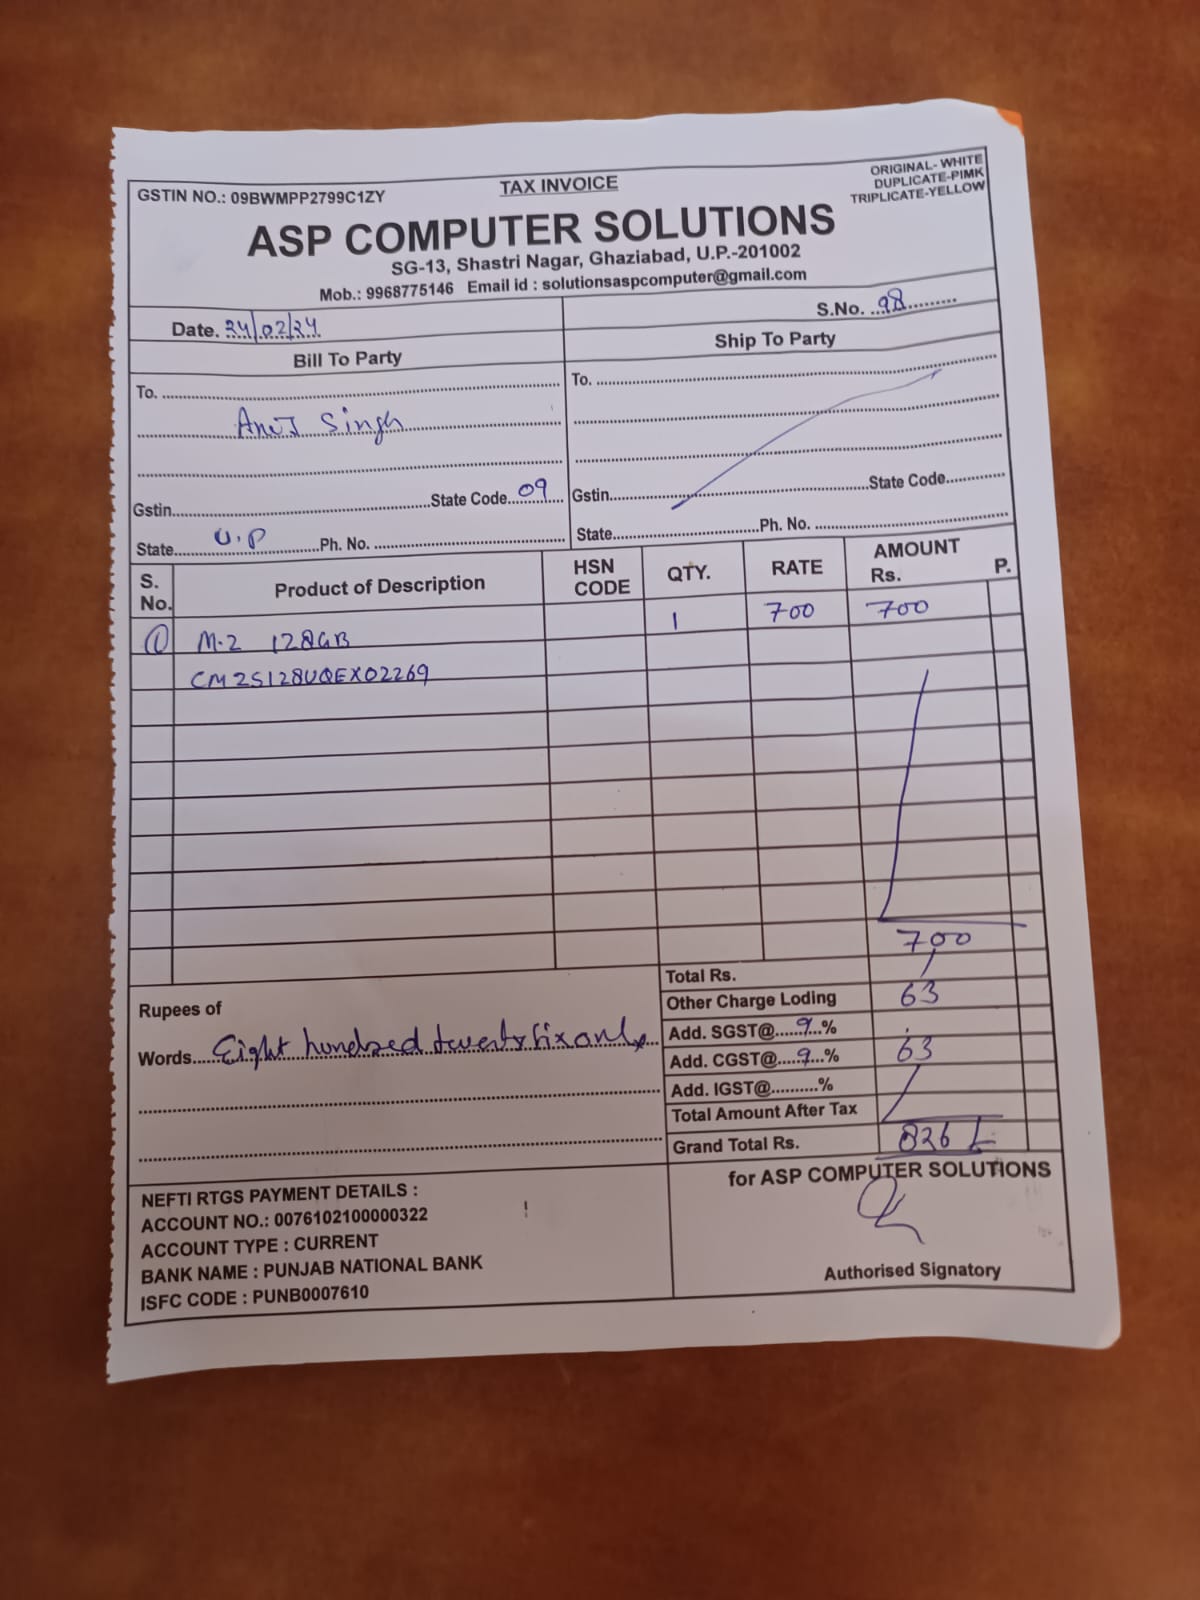 GSTIN NO.: 09BWMPP2799C1ZY
TAX INVOICE
ORIGINAL- WHITE
DUPLICATE-PIMK
TRIPLICATE-YELLOW
ASP COMPUTER SOLUTIONS
SG-13, Shastri Nagar, Ghaziabad, U.P.-201002
Mob.: 9968775146 Email id : solutionsaspcomputer@gmail.com
Date. 24/02/24
S.No. 98
Bill To Party
Ship To Party
To.
To.
Singh
Gstin. State Code. 09
Gstin. State Code.
State. U.P Ph. No.
State. Ph. No.
S. No. Product of Description HSN CODE QTY. RATE AMOUNT Rs. P.
1 M.2 128GB 1 700 700
CM2S128UQEX02269
700
Total Rs.
Other Charge Loding 63
Add. SGST@ 9 %
Add. CGST@ 9 % 63
Add. IGST@ %
Total Amount After Tax
Grand Total Rs. 826
Rupees of
Words. Eight hundred twenty six only
NEFTI RTGS PAYMENT DETAILS :
ACCOUNT NO.: 0076102100000322
ACCOUNT TYPE : CURRENT
BANK NAME : PUNJAB NATIONAL BANK
ISFC CODE : PUNB0007610
for ASP COMPUTER SOLUTIONS
Authorised Signatory